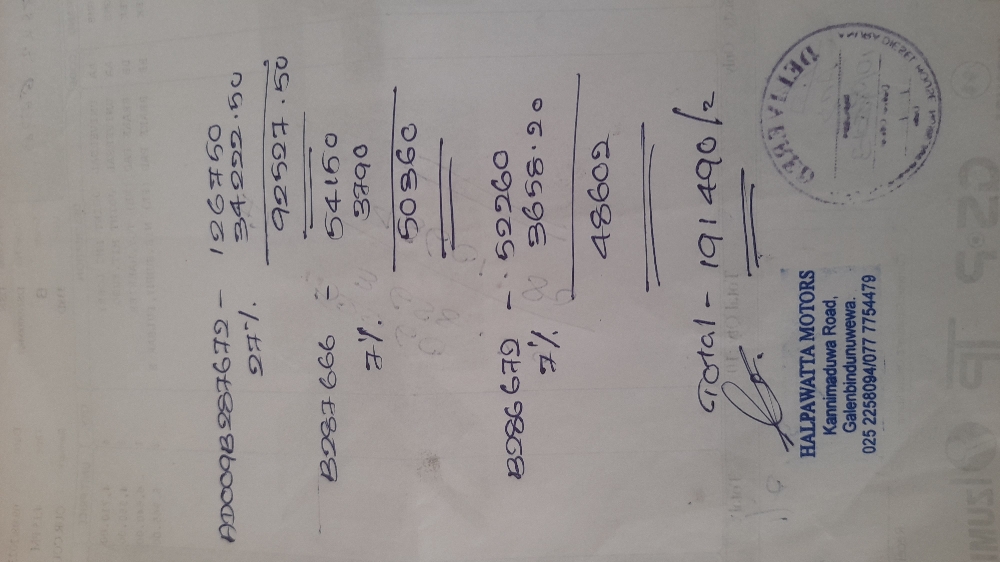 AD0009B2587672 - 126750
27% 34222.50
92527.50
B287666 - 54150
7% 3790
50360
B286672 - 52260
7% 3658.20
48602
Total - 191490/2
HALPAWATTA MOTORS
Kannimaduwa Road,
Galenbindunuwewa.
025 2258094/077 7754479